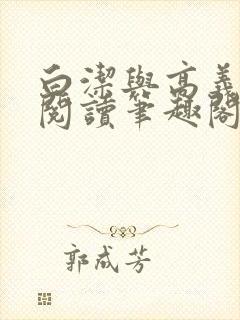 白潔與高義
閱讀筆趣閣
郭成芳